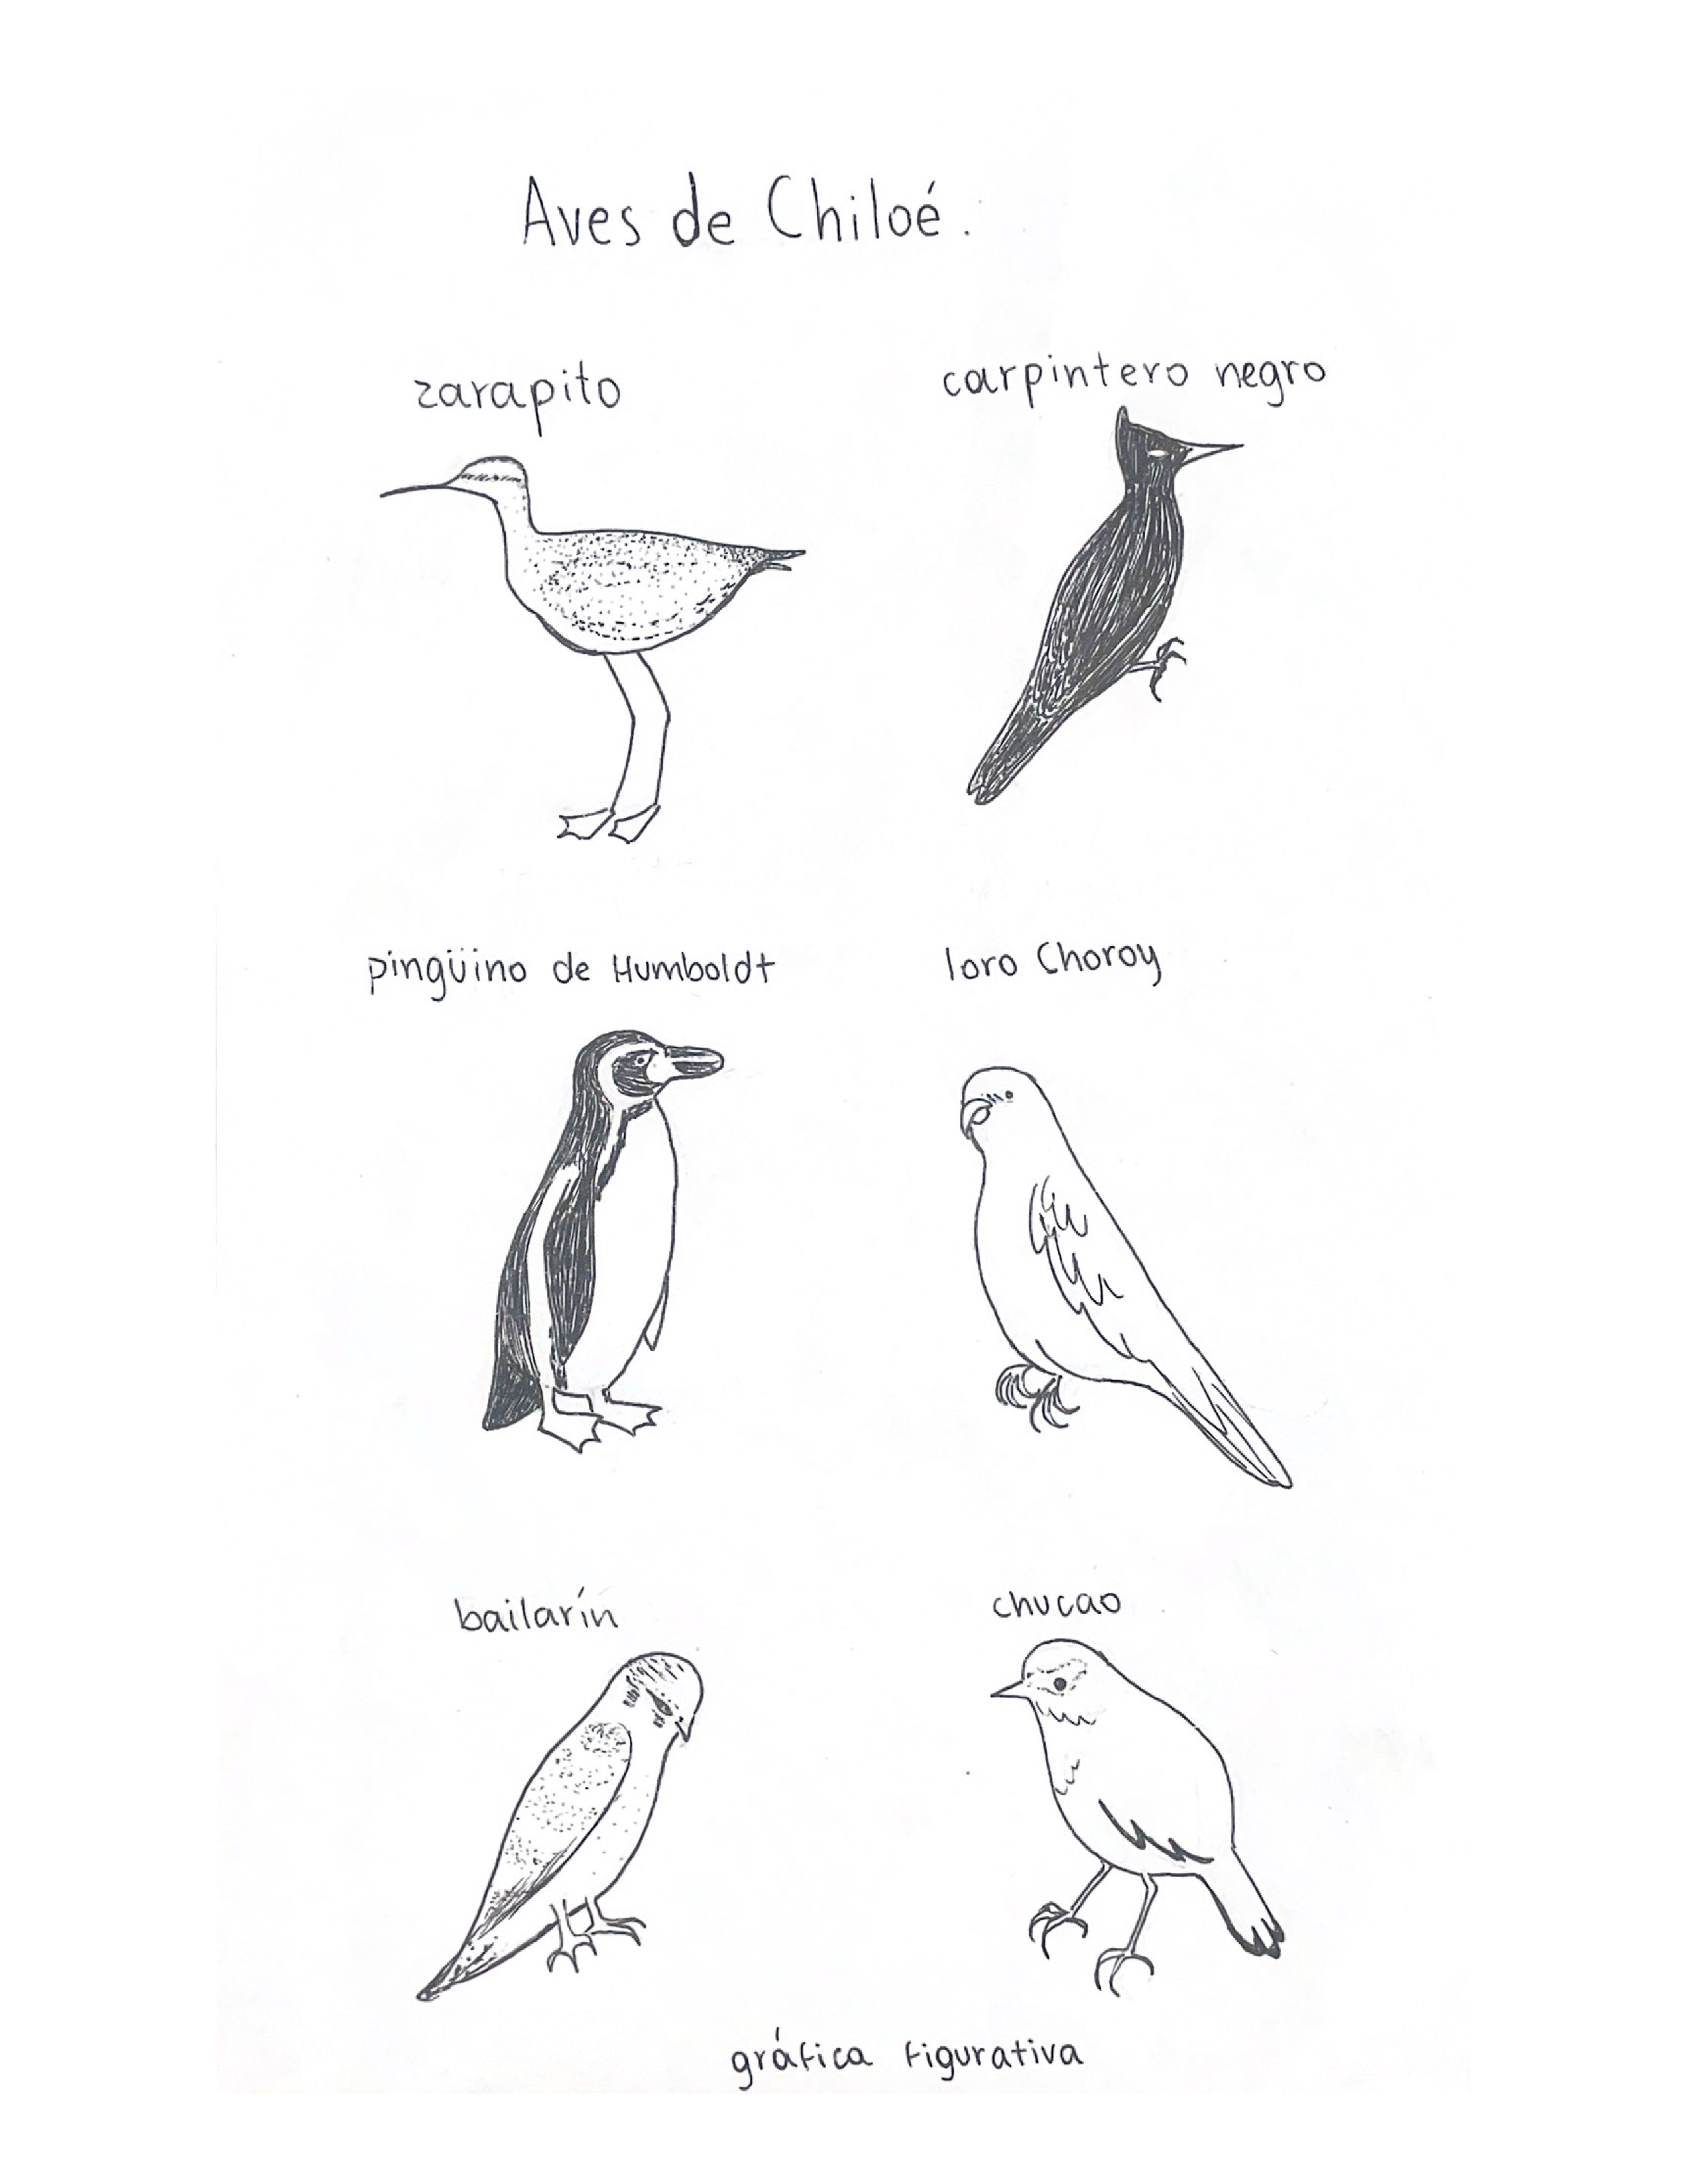 Aves de Chiloé.
zarapito
carpintero negro
pingüino de Humboldt
loro Choroy
bailarín
chucao
gráfica figurativa